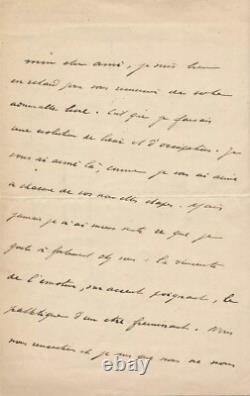 mon cher ami, je suis bien
en retard pour vous remercier de votre
admirable livre. C'est que je faisais
une de lieu et d'occupation. Je
vous ai aimé là, comme je vous ai aimé
à chacune de vos nouvelles étapes. Mais
jamais je n'ai mieux senti ce que je
goûte si fortement chez vous : la
de l'émotion, son accent poignant, le
pathétique d'un être frémissant. Nous
nous et je que nous ne nous